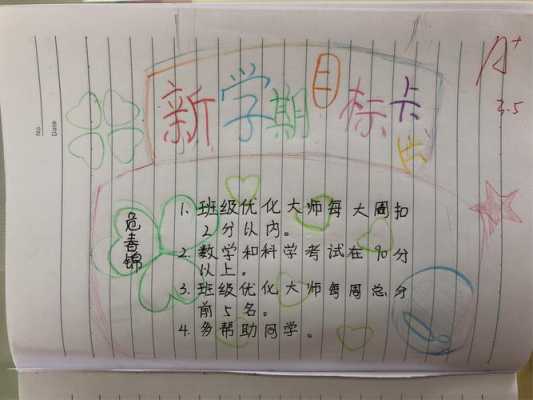 No
Date
新学期目标卡片
A+
3.5
危春锦
1. 班级优化大师每大周扣
2分以内。
2. 数学和科学考试在90分
以上。
3. 班级优化大师每周总分
前5名。
4. 多帮助同学。